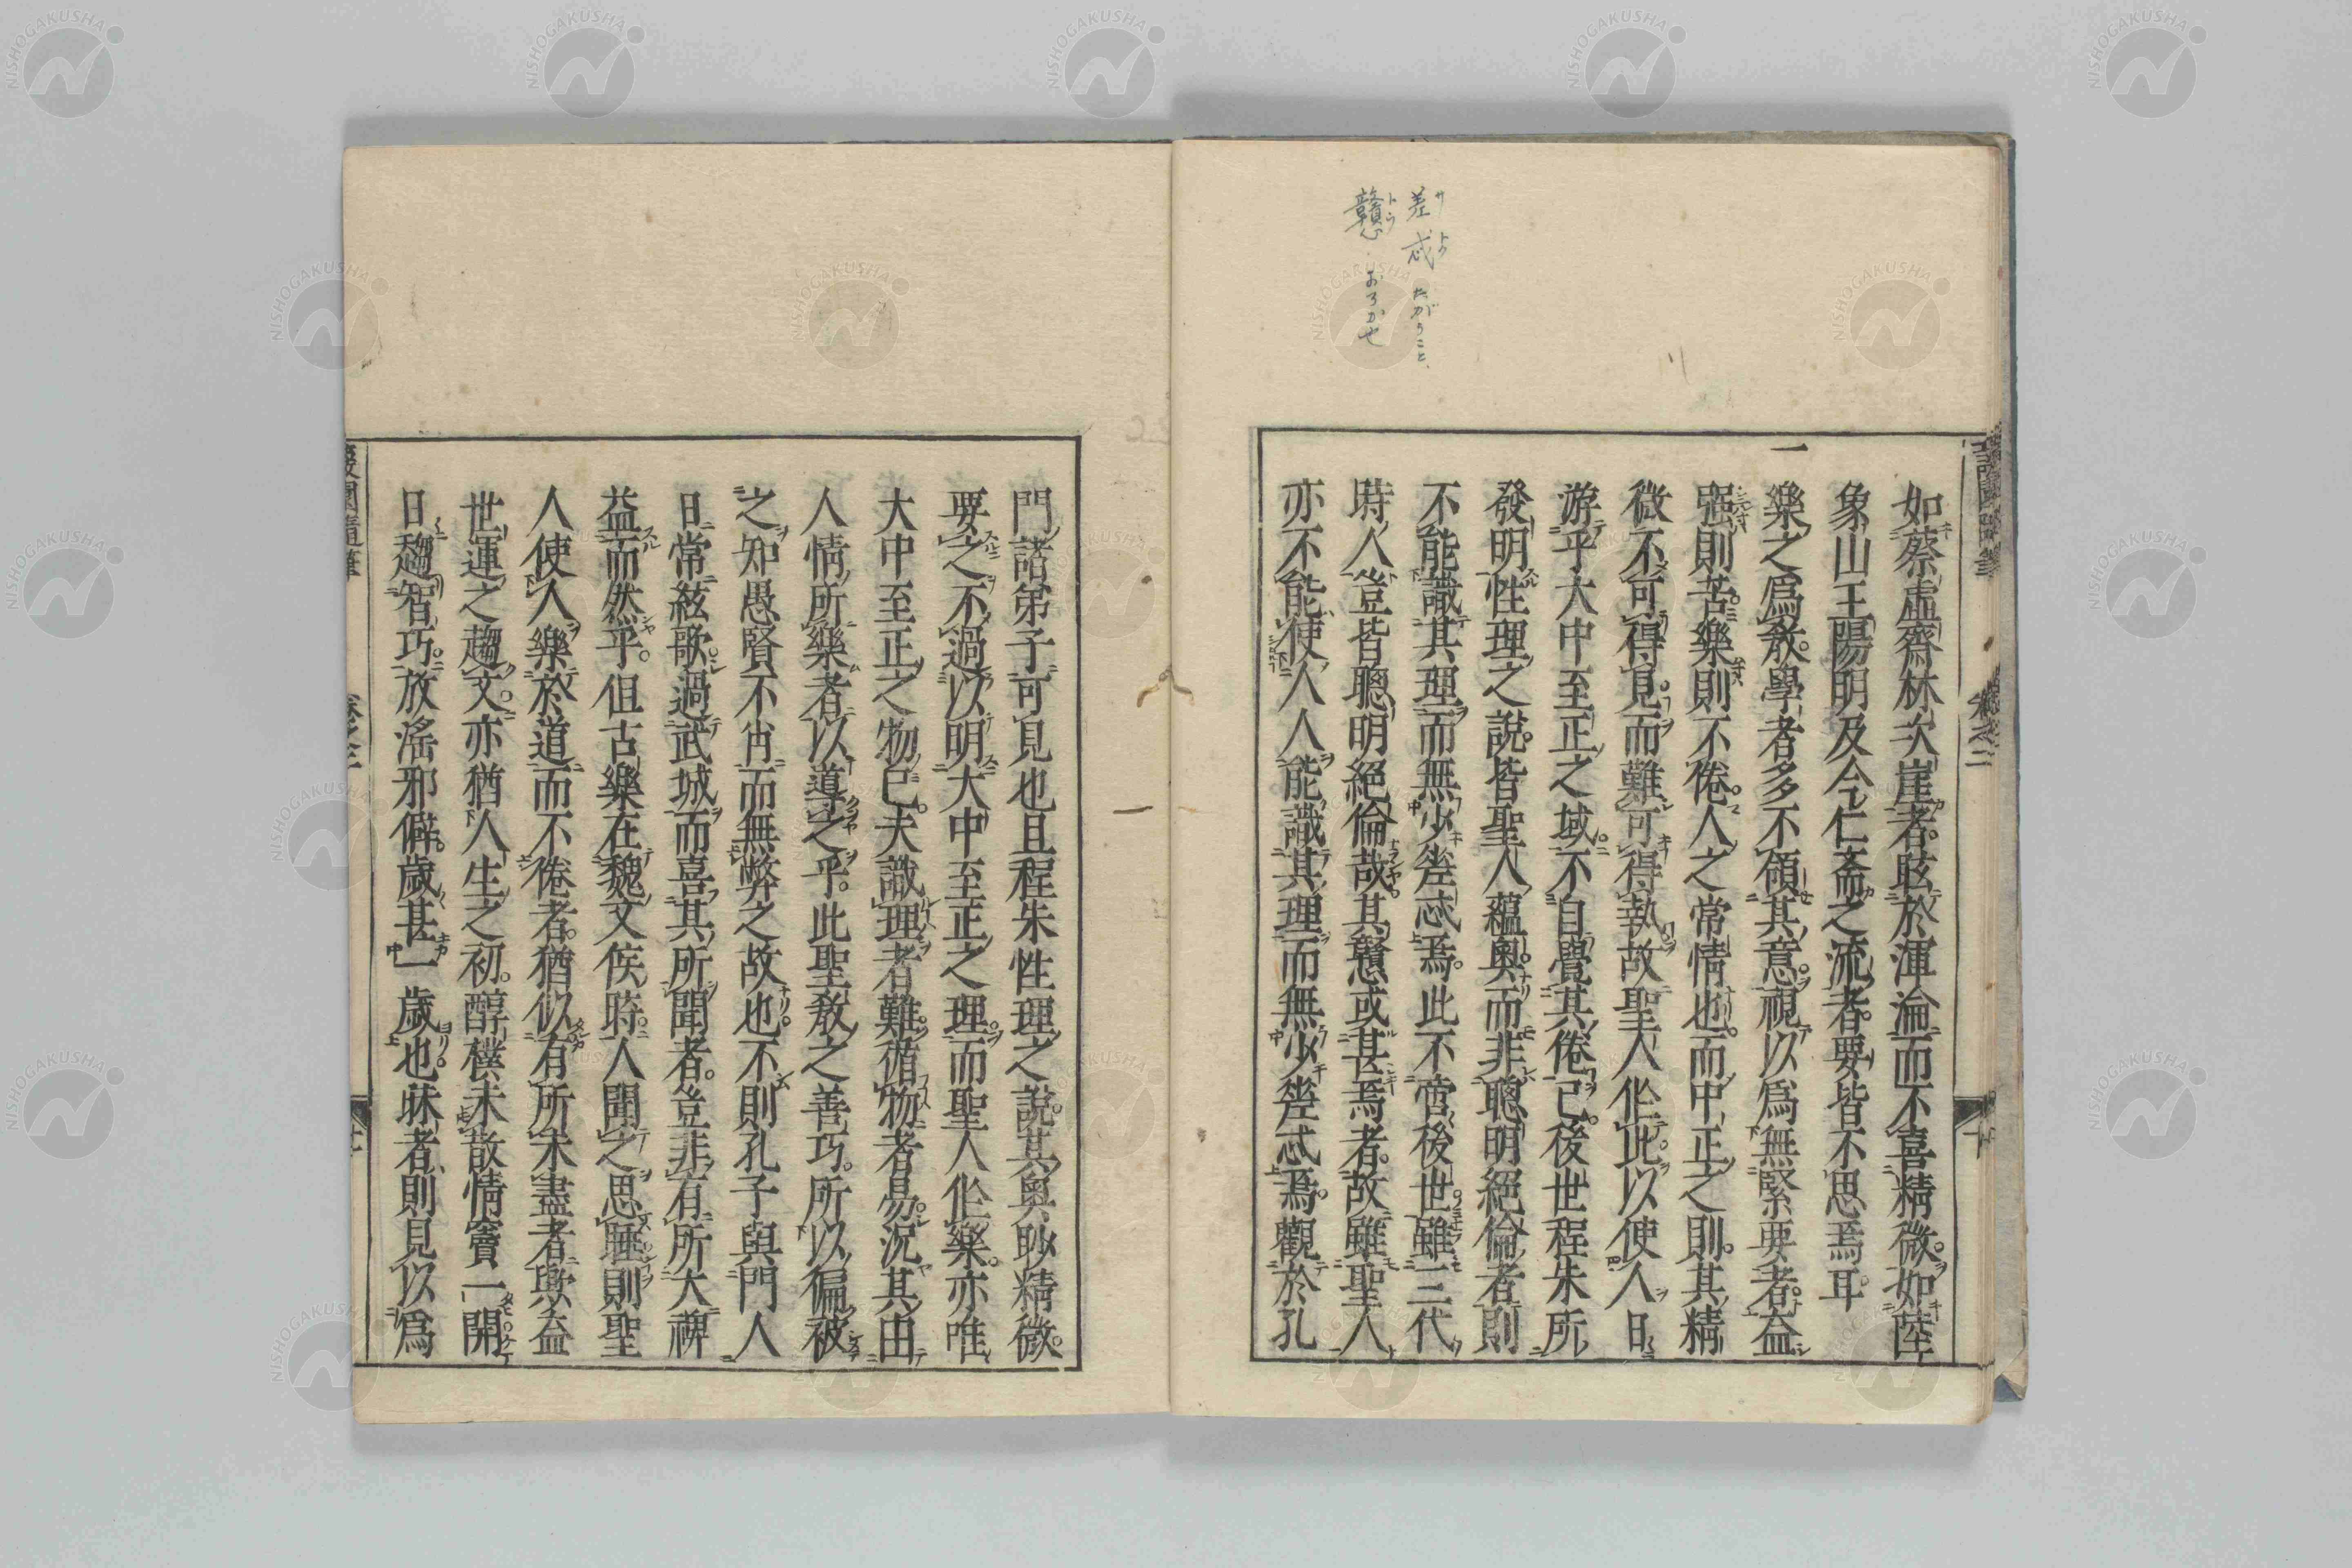 差忒 たがうこと
戇 おろか也
如蔡虛齋林次崖者。眩於渾淪而不喜精微。如陸
象山王陽明及今仁斎之流者。要皆不思焉耳
一
樂之爲敎。學者多不領其意。視以爲無緊要者。益
强則苦。樂則不倦。人之常情也。而中正之則。其精
微不可得見。而難可得執。故聖人作此。以使人日
游乎大中至正之域。不自覺其倦已。後世程朱所
發明性理之說。皆聖人蘊奧。而非聰明絕倫者。則
不能識其理而無少差忒焉。此不啻後世。雖三代
時人豈皆聰明絕倫哉。其戇或甚焉者。故雖聖人
亦不能使人人能識其理而無少差忒焉。觀於孔
門諸弟子可見也。且程朱性理之說。其奧眇精微。
要之不過以明大中至正之理。而聖人作樂。亦唯
大中至正之物已。夫識理者難。循物者易。況其由
人情所樂者以導之乎。此聖敎之善巧。所以徧被
之知愚賢不肖而無弊之故也。不則孔子與門人
日常絃歌。過武城而喜其所聞者。豈非有所大裨
益而然乎。但古樂在魏文侯時。人聞之思睡。則聖
人使人樂於道而不倦者。猶似有所未盡者歟。益
世運之趨文。亦猶人生之初。醇樸未散。情竇一開
日趨智巧。放淫邪僻。歲甚一歲也。昧者則見以爲
蘐園隨筆
卷之二
十